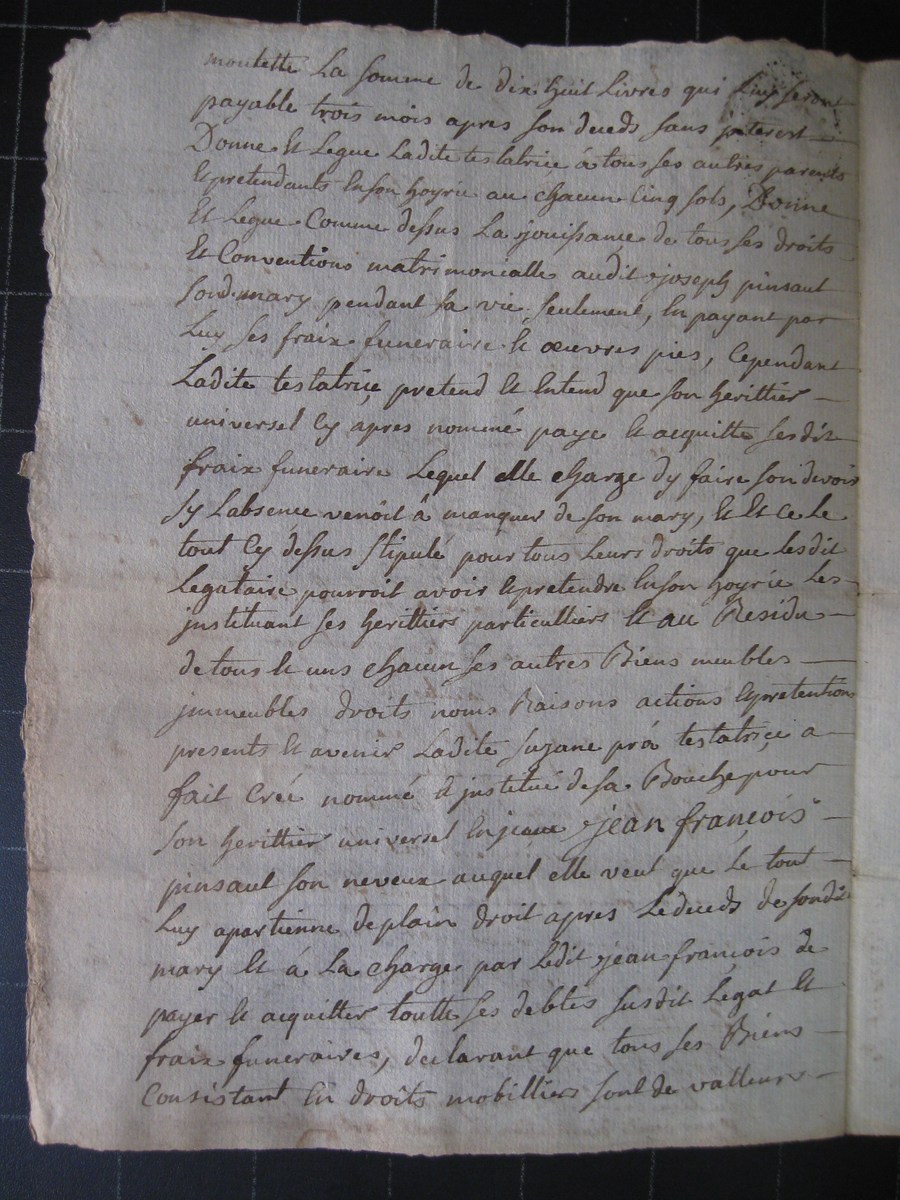 moulette La somme de dix huit Livres qui Luy seront
payable trois mois apres son deceds sans jnterest
Donne et Legue Ladite testatrice á tous ses autres parents
et pretendants en son hoyrie au chacun Cinq sols, Donne
et Legue Comme dessus La jouissance de tous ses droits
et Conventions matrimonialle audit joseph pinsaut
sondmary pendant sa vie seulement, en payant par
Luy ses fraix funeraire et œuvres pies, Cependant
Ladite testatrice pretend et entend que son herittier
universel Cy apres nommé paye et acquitte sesdit
fraix funeraire Lequel elle charge dy faire son devoir
sy Labsence venoit â manquer de son mary, et et ce Le
tout Cy dessus stipulé pour tous Leurs droits que lesdit
Legataire pourroit avoir et pretendre en son hoyrie Les
jnstituant ses herittiers particulliers et au Residu
de tous et uns chacun ses autres Biens meubles
jmmeubles droits noms Raisons actions et pretention
presents et avenir Ladite suzane prá testatrice a
fait Créé nommé et jnstitué de sa Bouche pour
son herittier universel jean françois
pinsaut son neveux auquel elle veut que Le tout
Luy apartienne de plain droit apres Le deceds de sondit
mary et á La charge par Ledit jean françois de
payer et acquitter toutte ses debtes susdit Légat et
fraix funeraires, declarant que tous ses Biens
Consistant en droits mobilliers sont de valleur